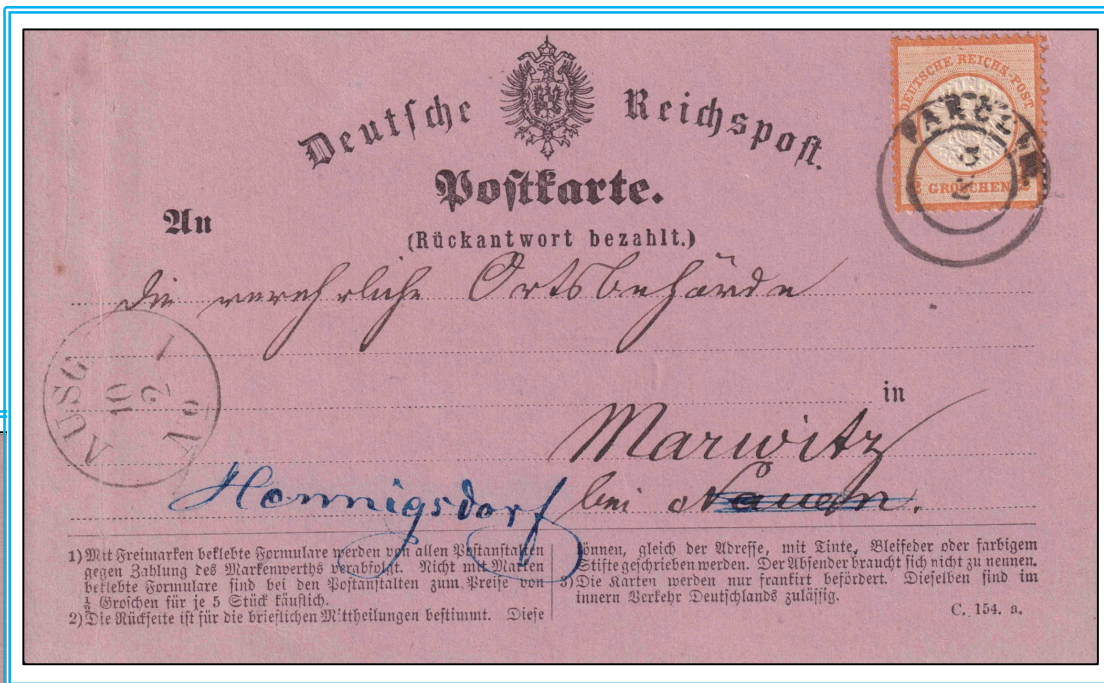 Deutsche Reichspost.
Postkarte.
(Rückantwort bezahlt.)
DEUTSCHE REICHS-POST
GROSCHEN
An
die verehrliche Ortsbehörde
in
Marwitz
Hennigsdorf bei Nauen.
AUSG
10
2
1
No
1) Mit Freimarken beklebte Formulare werden von allen Postanstalten
gegen Zahlung des Markenwerths verabfolgt. Nicht mit Marken
beklebte Formulare sind bei den Postanstalten zum Preise von
¼ Groschen für je 5 Stück käuflich.
2) Die Rückseite ist für die brieflichen Mittheilungen bestimmt. Diese
können, gleich der Adresse, mit Tinte, Bleifeder oder farbigem
Stifte geschrieben werden. Der Absender braucht sich nicht zu nennen.
3) Die Karten werden nur frankirt befördert. Dieselben sind im
innern Verkehr Deutschlands zulässig.
C. 154. a.